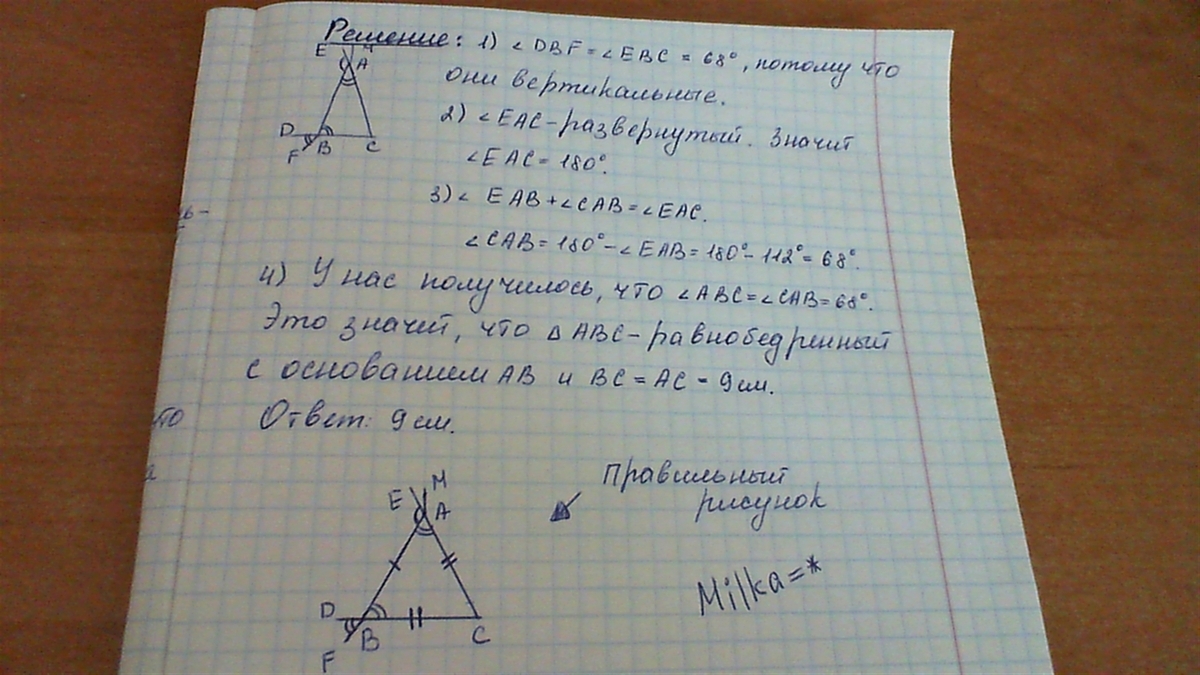 Решение: 1) ∠DBF = ∠EBC = 68°, потому что
они вертикальные.
2) ∠EAC - развернутый. Значит
∠EAC = 180°.
3) ∠ EAB + ∠CAB = ∠EAC.
∠CAB = 180° - ∠EAB = 180° - 112° = 68°.
4) У нас получилось, что ∠ABC = ∠CAB = 68°.
Это значит, что △ ABC - равнобедренный
с основанием AB и BC = AC = 9 см.
Ответ: 9 см.
E
A
D
F
B
C
Правильный
рисунок
M
E
A
D
B
C
F
Milka=*